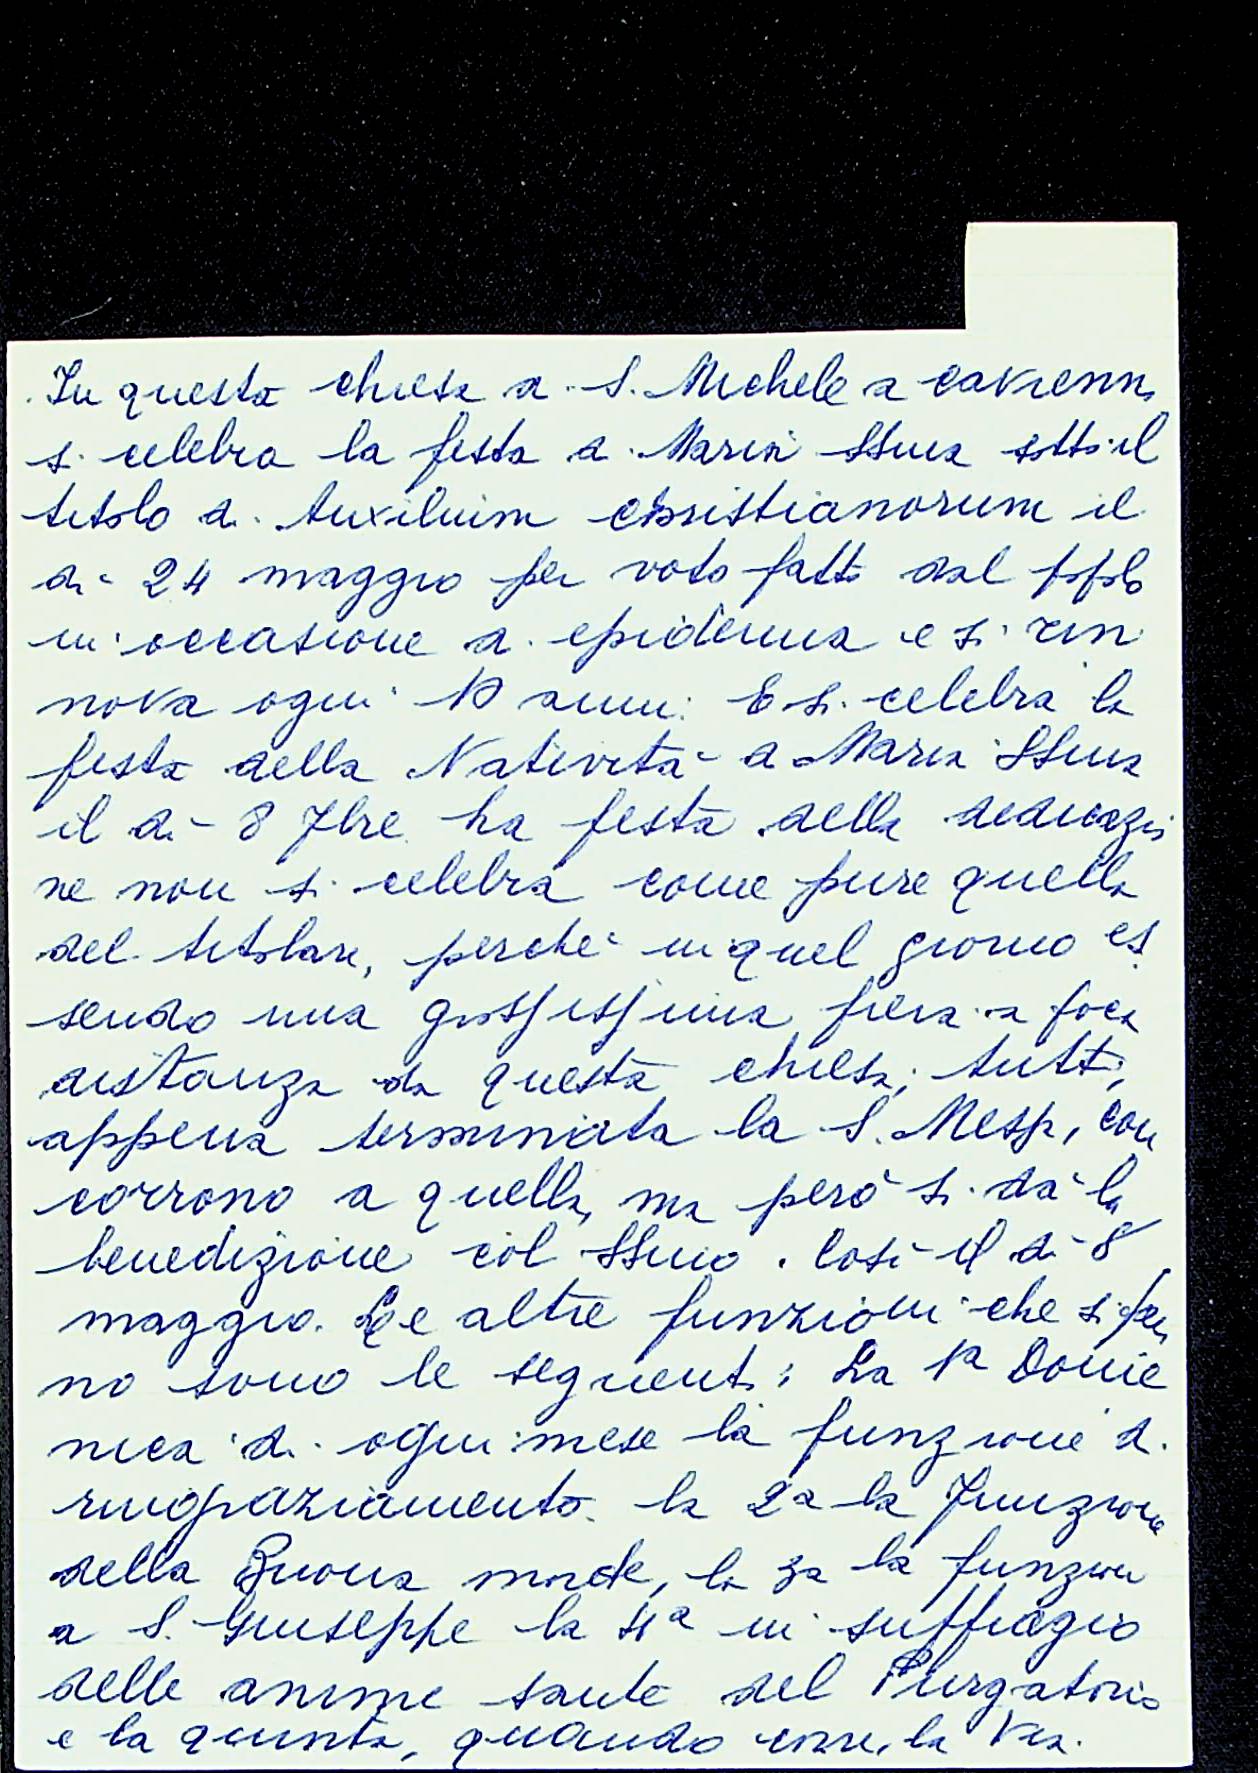 In questa chiesa di S. Michele a Cavrenno
si celebra la festa di Maria SSma sotto il
titolo di Auxilium Christianorum il
dì 24 maggio per voto fatto dal popolo
in occasione di epidemia e si rin
nova ogni 10 anni. E si celebra la
festa della Natività di Maria SSma
il dì 8 7bre. La festa della dedicazio
ne non si celebra come pure quella
del titolare, perché in quel giorno es
sendo una grossissima fiera a poca
distanza da questa chiesa, tutti,
appena terminata la S. Messa, con
corrono a quella, ma però si dà la
benedizione col SSmo. Così il dì 8
maggio. Le altre funzioni che si fan
no sono le seguenti: La 1a Dome
nica di ogni mese la funzione di
ringraziamento. la 2a la Funzione
della Buona morte, la 3a la funzione
a S. Giuseppe la 4a in suffragio
delle anime sante del Purgatorio
e la quinta, quando corre, la Via.